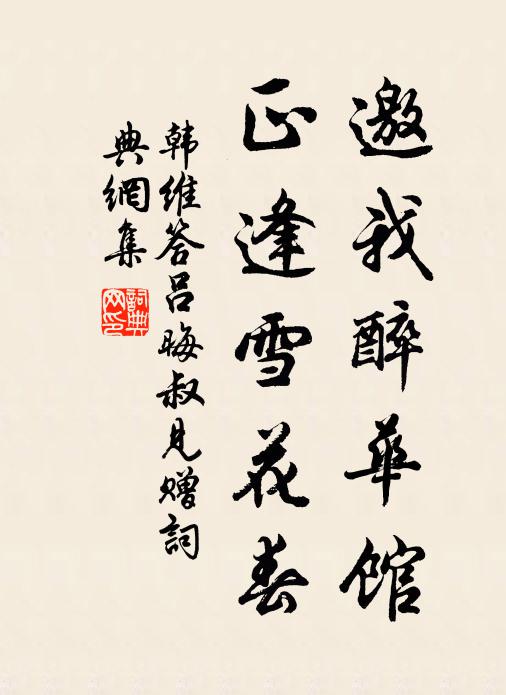 邀我醉華館
正逢雪花春
韩维答吕晦叔見赠詞
典網集
詞典网印